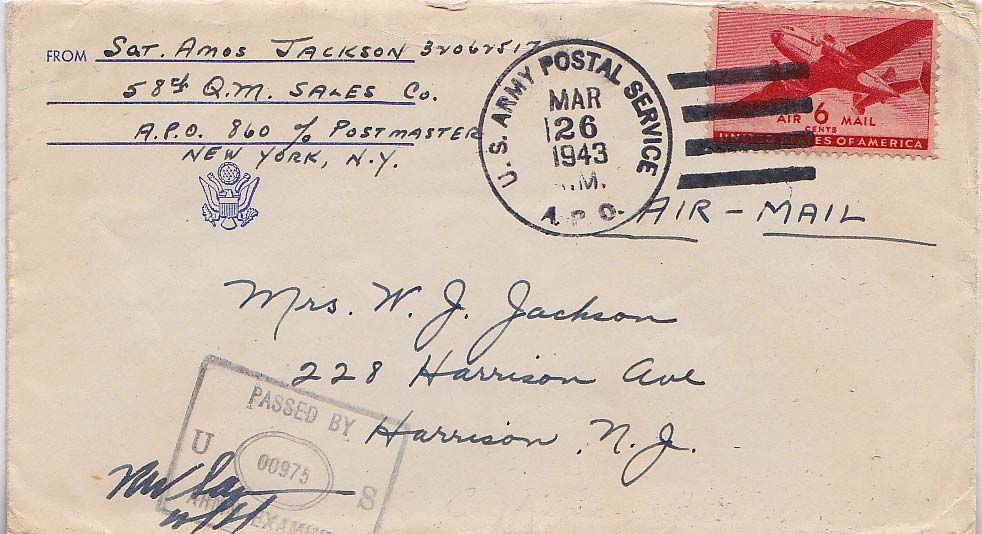 FROM Sgt. Amos Jackson 32062517
58th Q.M. Sales Co.
A.P.O. 860 c/o Postmaster
New York, N.Y.
U.S. ARMY POSTAL SERVICE
MAR
26
1943
.M.
A.P.O.
AIR 6 MAIL
CENTS
UNITED STATES OF AMERICA
AIR-MAIL
Mrs. W. J. Jackson
228 Harrison Ave
Harrison, N.J.
PASSED BY
U 00975 S
ARMY EXAMINER